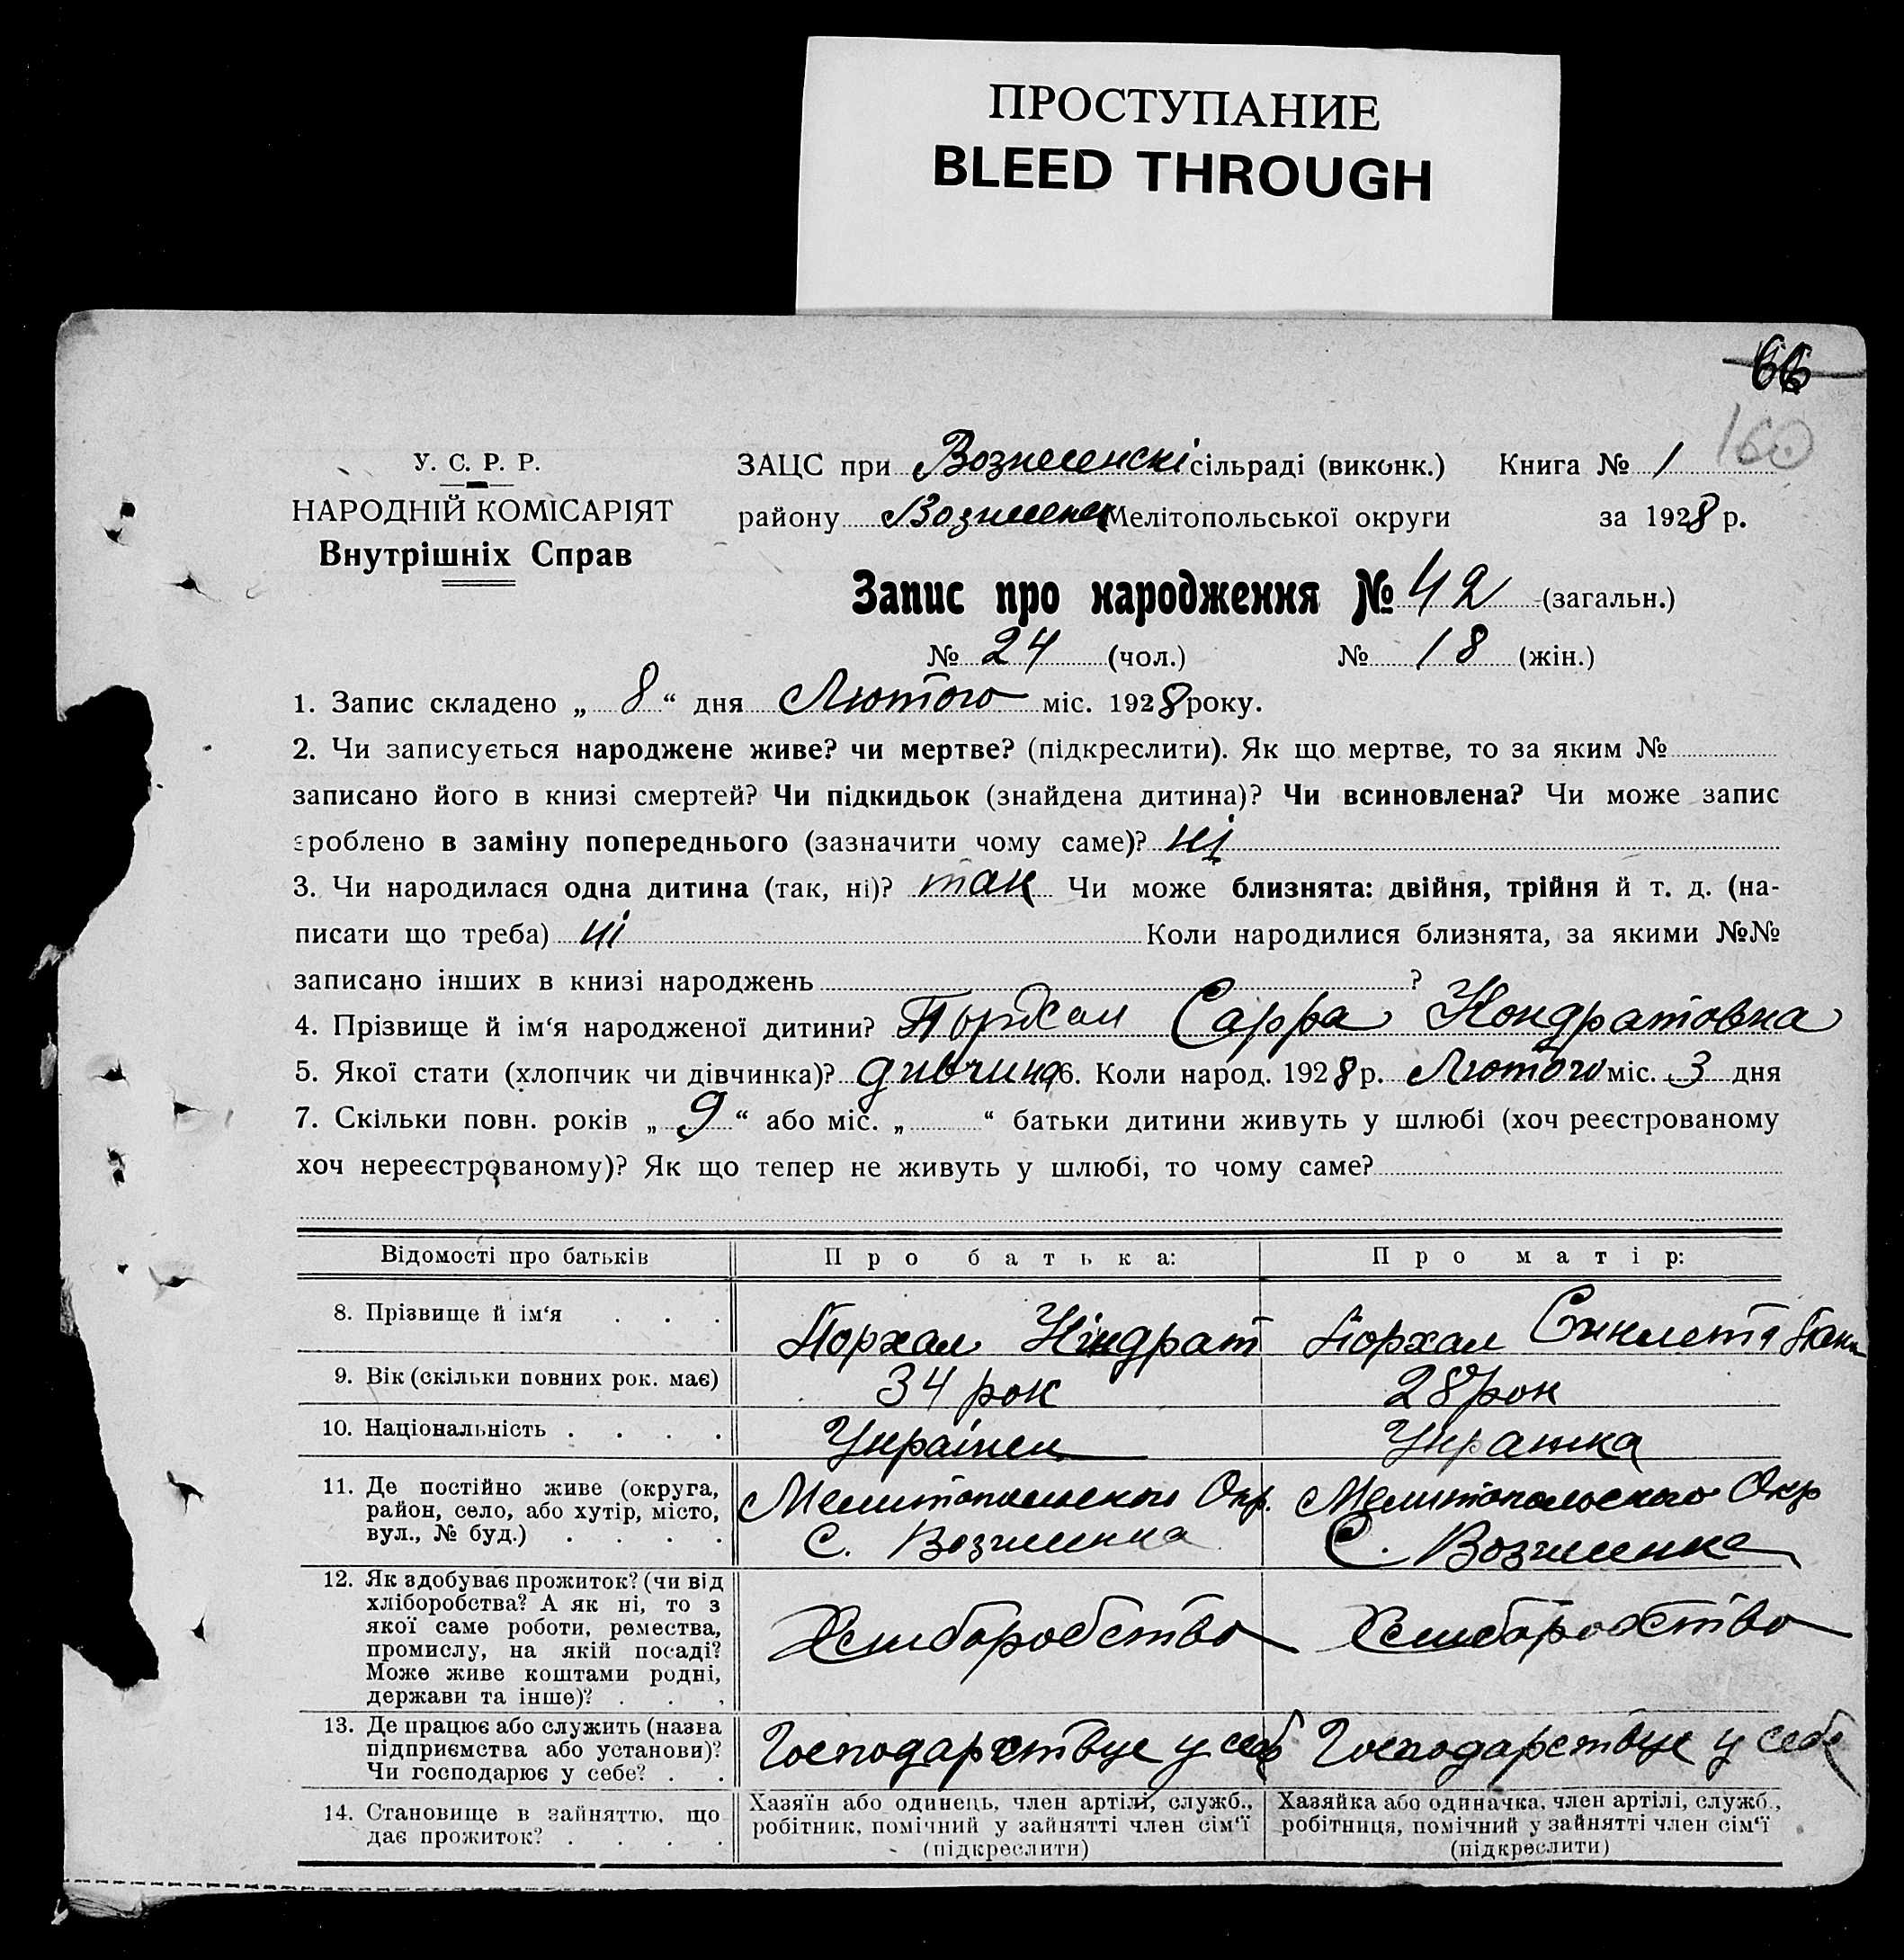 ПРОСТУПАНИЕ
BLEED THROUGH
66
160
У. С. Р. Р.
НАРОДНІЙ КОМІСАРІЯТ
Внутрішніх Справ
ЗАЦС при Вознесенскі сільраді (виконк.) Книга № 1
району Вознесенк Мелітопольської округи за 1928 р.
Запис про народження № 42 (загальн.)
№ 24 (чол.) № 18 (жін.)
1. Запис складено „ 8 “ дня Лютого міс. 1928 року.
2. Чи записується народжене живе? чи мертве? (підкреслити). Як що мертве, то за яким №
записано його в книзі смертей? Чи підкидьок (знайдена дитина)? Чи всиновлена? Чи може запис
зроблено в заміну попереднього (зазначити чому саме)? ні
3. Чи народилася одна дитина (так, ні)? так Чи може близнята: двійня, трійня й т. д. (на-
писати що треба) ні Коли народилися близнята, за якими №№
записано інших в книзі народжень ?
4. Прізвище й ім‘я народженої дитини? Порхал Сарра Кондратовна
5. Якої стати (хлопчик чи дівчинка)? дивчина 6. Коли народ. 1928 р. Лютого міс. 3 дня
7. Скільки повн. років „ 9 “ або міс. „ “ батьки дитини живуть у шлюбі (хоч реєстрованому
хоч нереєстрованому)? Як що тепер не живуть у шлюбі, то чому саме?
Відомості про батьків Про батька: Про матір:
8. Прізвище й ім‘я . . . Порхал Кіндрат Порхал
9. Вік (скільки повних рок. має) 34 рок 28 рок
10. Національність . . . . Украінец Украінка
11. Де постійно живе (округа,
район, село, або хутір, місто,
вул., № буд.) . . . .
Мелитопольскои Окр. Мелитопольского Окр
С. Вознесенка С. Вознесенка
12. Як здобуває прожиток? (чи від
хліборобства? А як ні, то з
якої саме роботи, ремества,
промислу, на якій посаді?
Може живе коштами родні,
держави та інше)? . . .
Хлиборобство Хлиборобство
13. Де працює або служить (назва
підприємства або установи)?
Чи господарює у себе? . .
Господарствує у себ Господарствує у себе
14. Становище в зайняттю, що
дає прожиток? . . . .
Хазяїн або одинець, член артілі, служб.,
робітник, помічний у зайнятті член сім‘ї
(підкреслити)
Хазяйка або одиначка, член артілі, служб.,
робітниця, помічний у зайнятті член сім‘ї
(підкреслити)